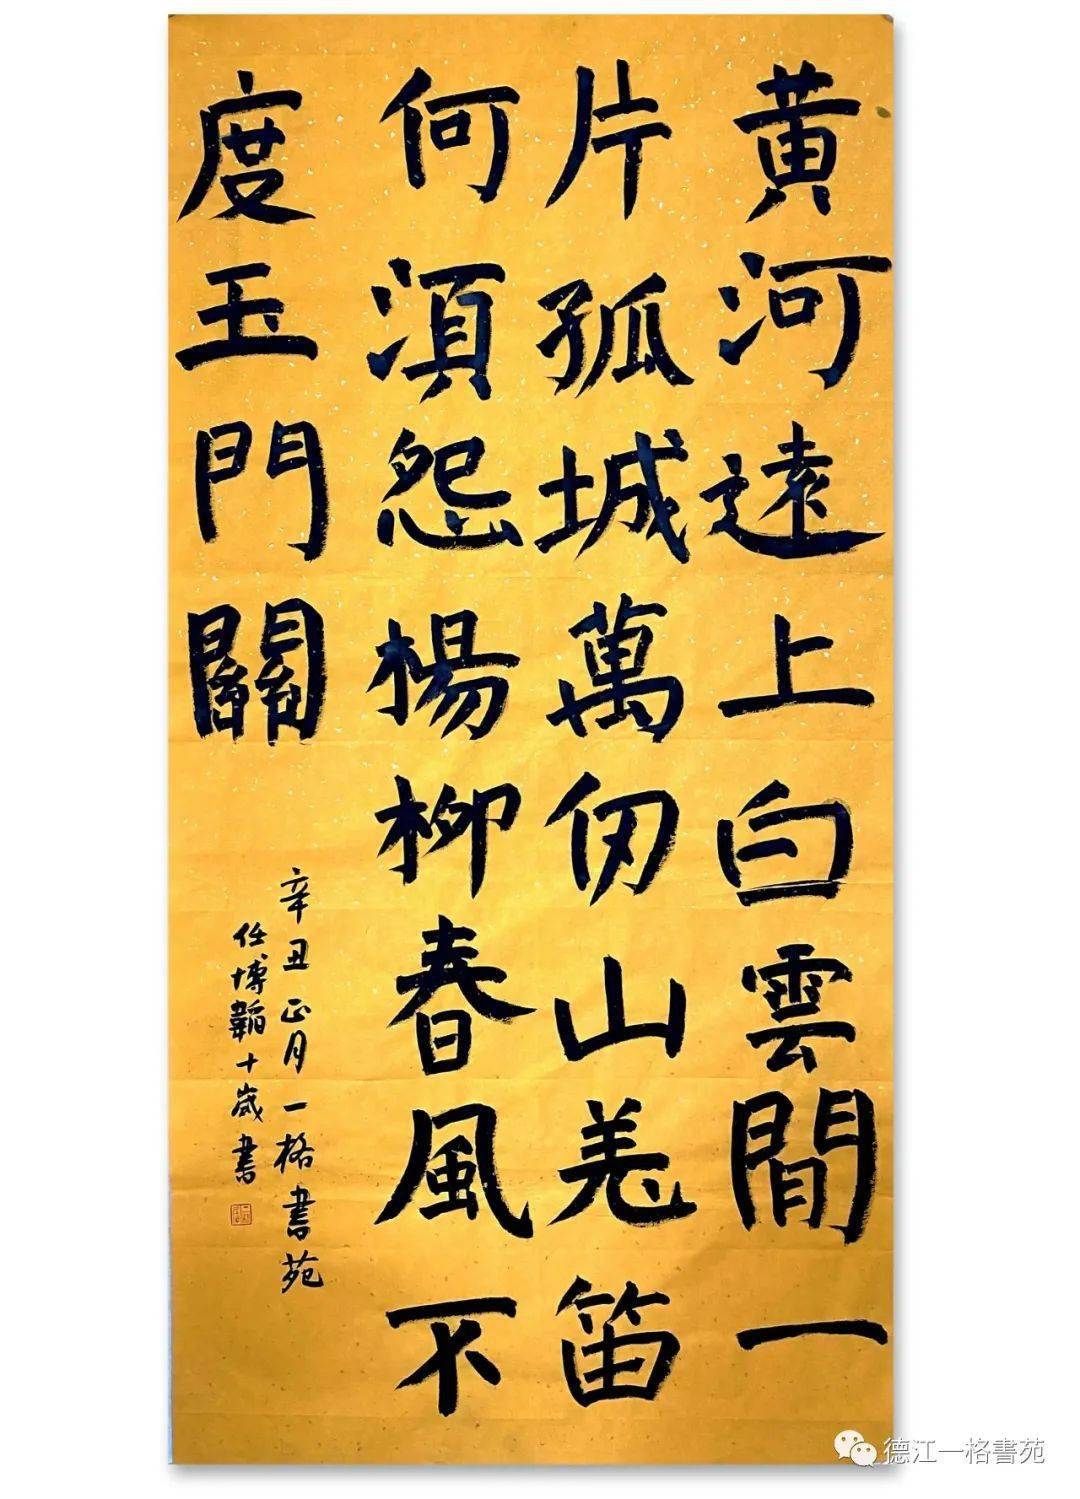 黄河遠上白雲間一
片孤城萬仞山羌笛
何須怨楊柳春風不
度玉門關
辛丑正月一格書苑
任博韜十歲書
德江一格書苑